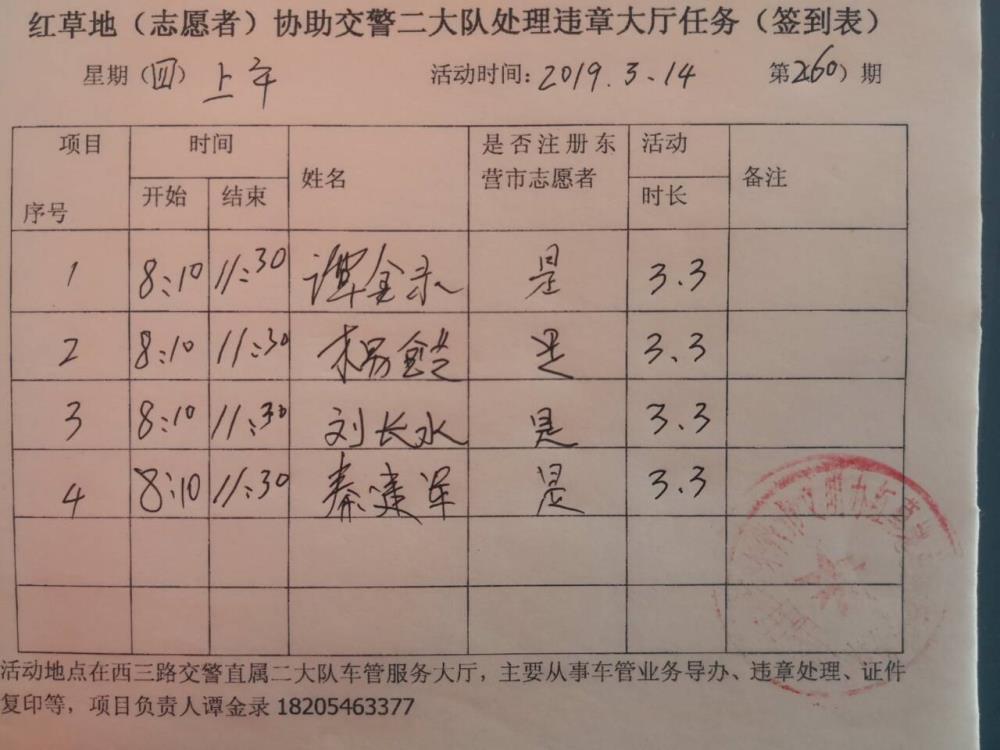 红草地（志愿者）协助交警二大队处理违章大厅任务（签到表）
星期（四）上午 活动时间：2019.3.14 第260）期
项目 时间 姓名 是否注册东营市志愿者 活动时长 备注
序号 开始 结束
1 8:10 11:30 谭金录 是 3.3
2 8:10 11:30 是 3.3
3 8:10 11:30 刘长水 是 3.3
4 8:10 11:30 秦建军 是 3.3
文明办红草地
活动地点在西三路交警直属二大队车管服务大厅，主要从事车管业务导办、违章处理、证件
复印等，项目负责人谭金录 18205463377